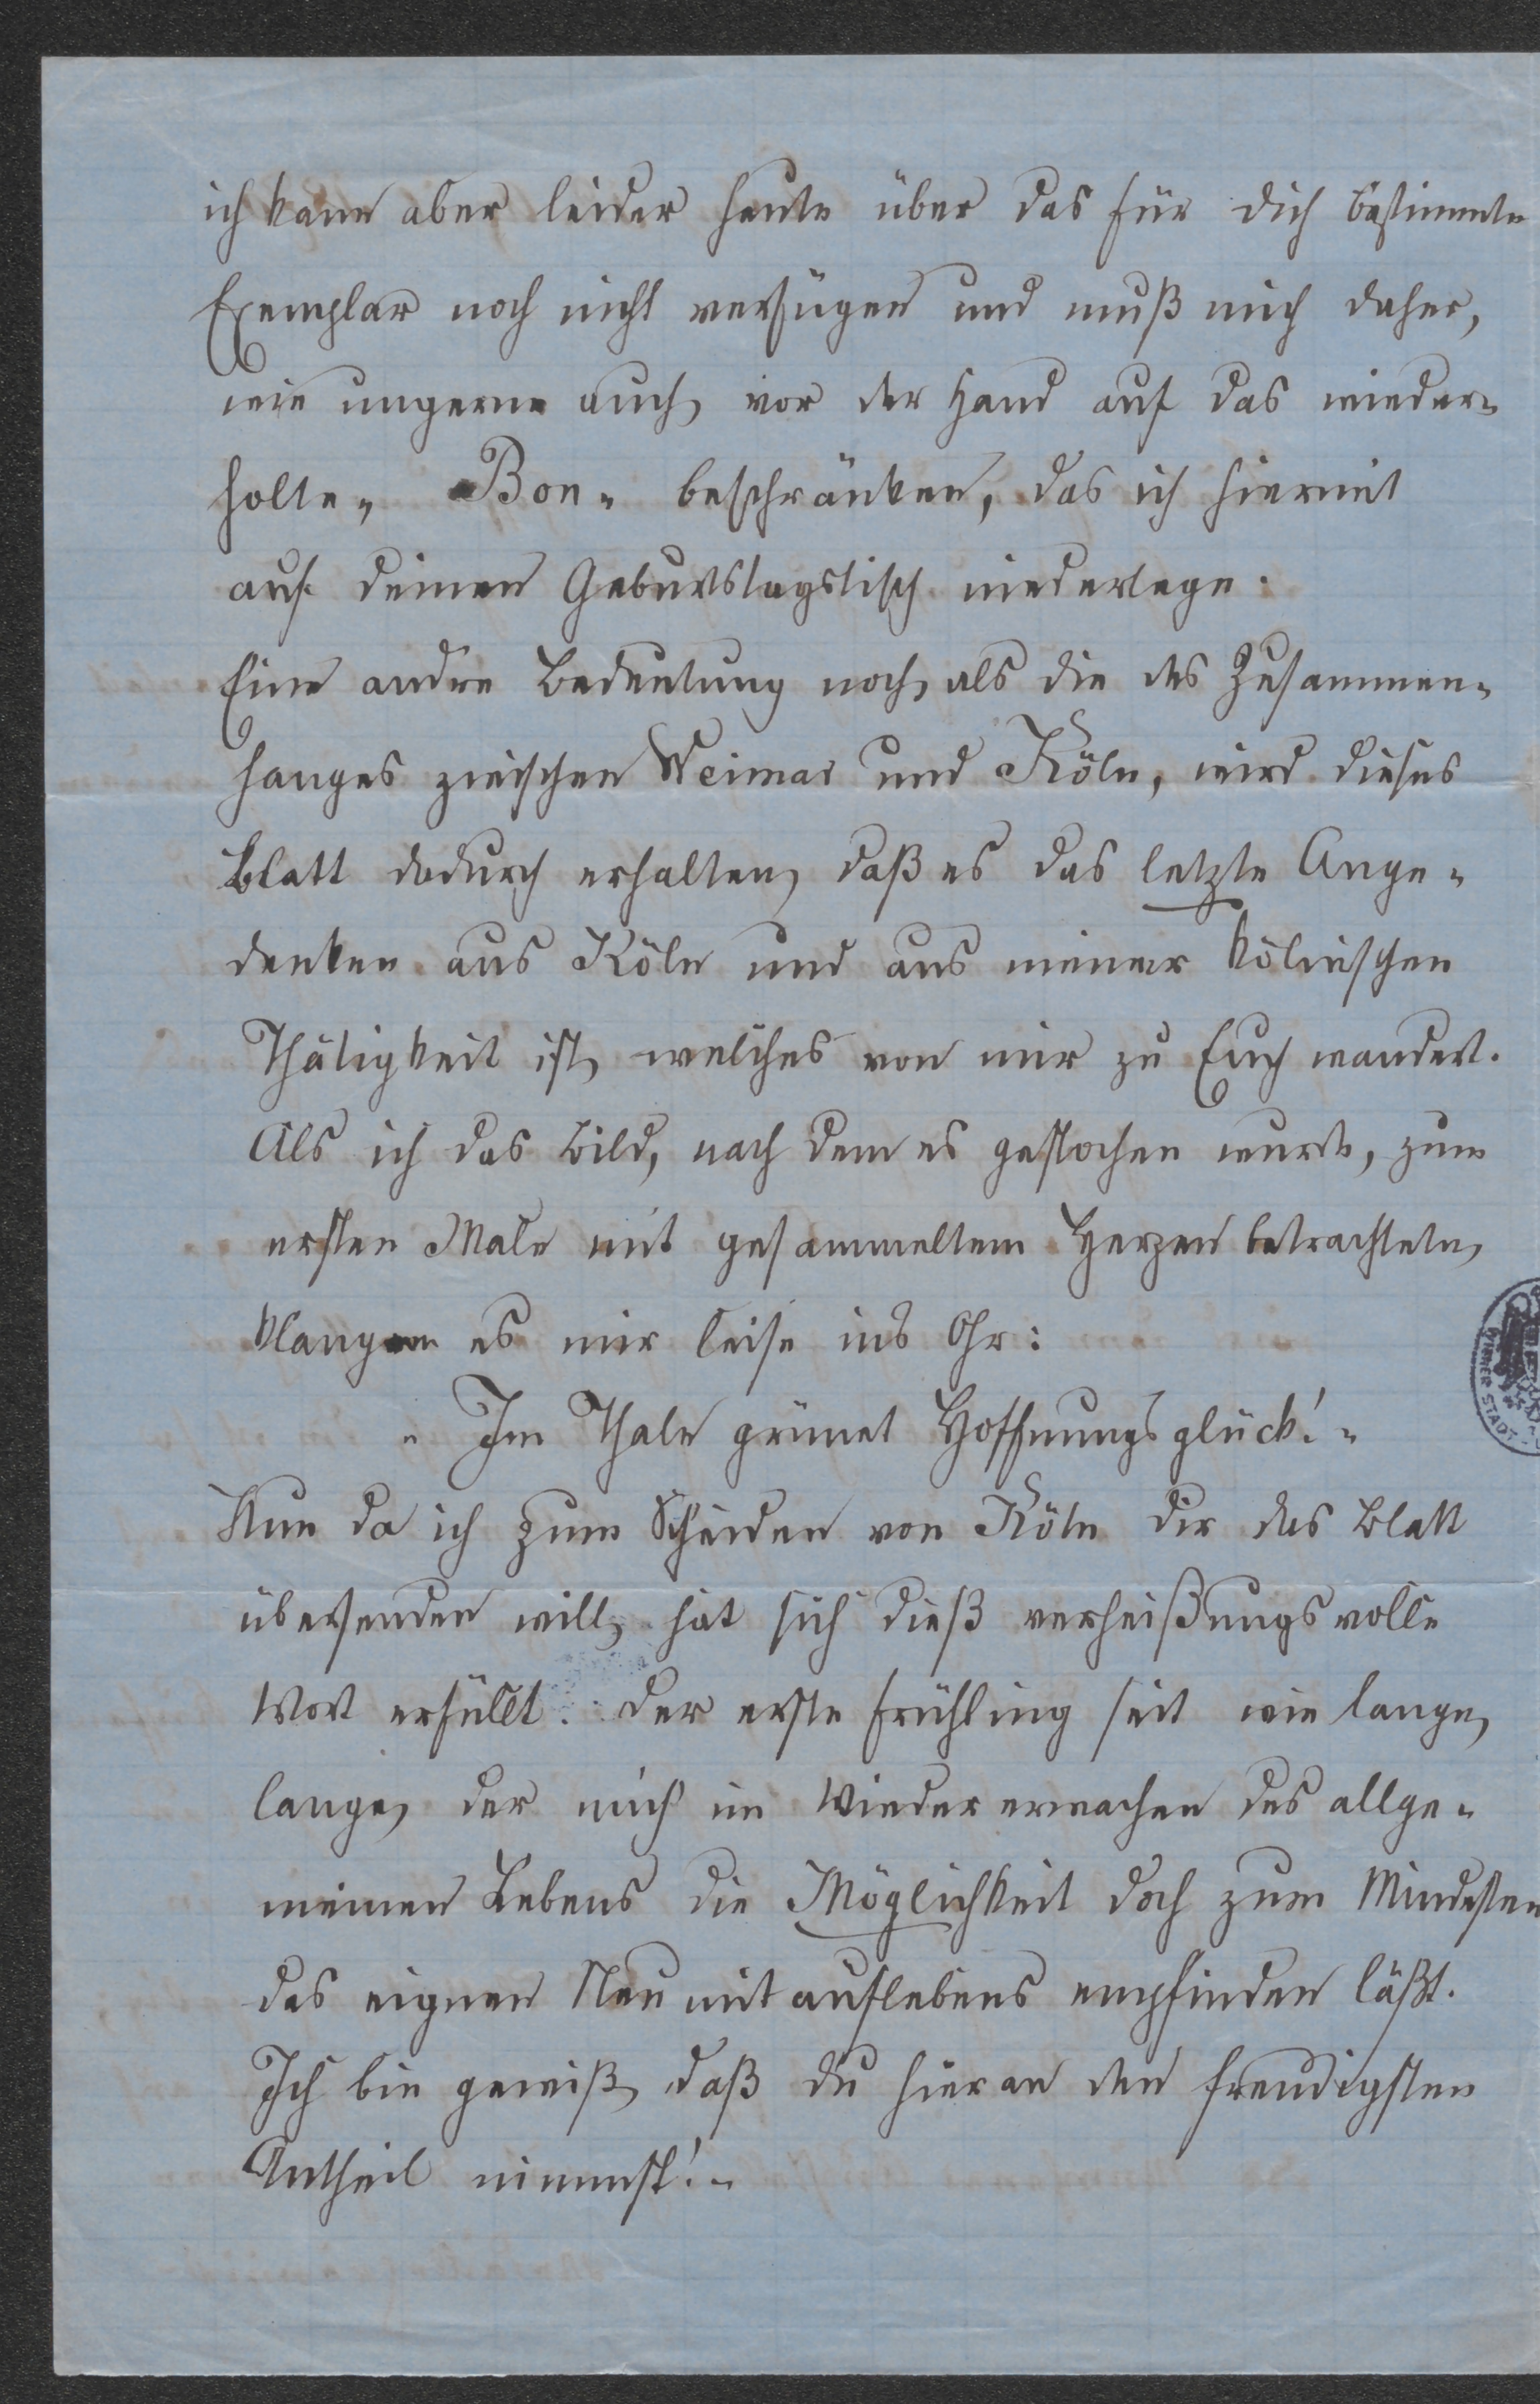 ich kann aber leider heute über das für dich bestimmte
Exemplar noch nicht verfügen und muß mich daher,
wie ungerne auch, vor der Hand auf das wieder„
holte „ Bon „ beschränken, das ich hiermit
auf deinen Geburtstagstisch niederlege.
Eine andre Bedeutung noch, als die des Zusammen„
hanges zwischen Weimar und Köln, wird dieses
Blatt dadurch erhalten, daß es das letzte Ange„
denken aus Köln und aus meiner kölnischen
Thätigkeit ist, welches von mir zu Euch wandert.
Als ich das Bild, nach dem es gestochen wurde, zum
ersten Male mit gesammeltem Herzen betrachtete,
klang es mir leise ins Ohr:
„ Im Thale grünet Hoffnungsglück! „
Nun da ich zum Scheiden von Köln dir das Blatt
übersenden will, hat sich dieß verheißungsvolle
Wort erfüllt. Der erste Frühling seit wie lange,
lange, der mich im Wiedererwachen des allge„
meinen Lebens die Möglichkeit doch zum Mindesten
des eignen Neumitauflebens empfinden läßt.
Ich bin gewiß, daß du hieran den freudigsten
Antheil nimmst! „